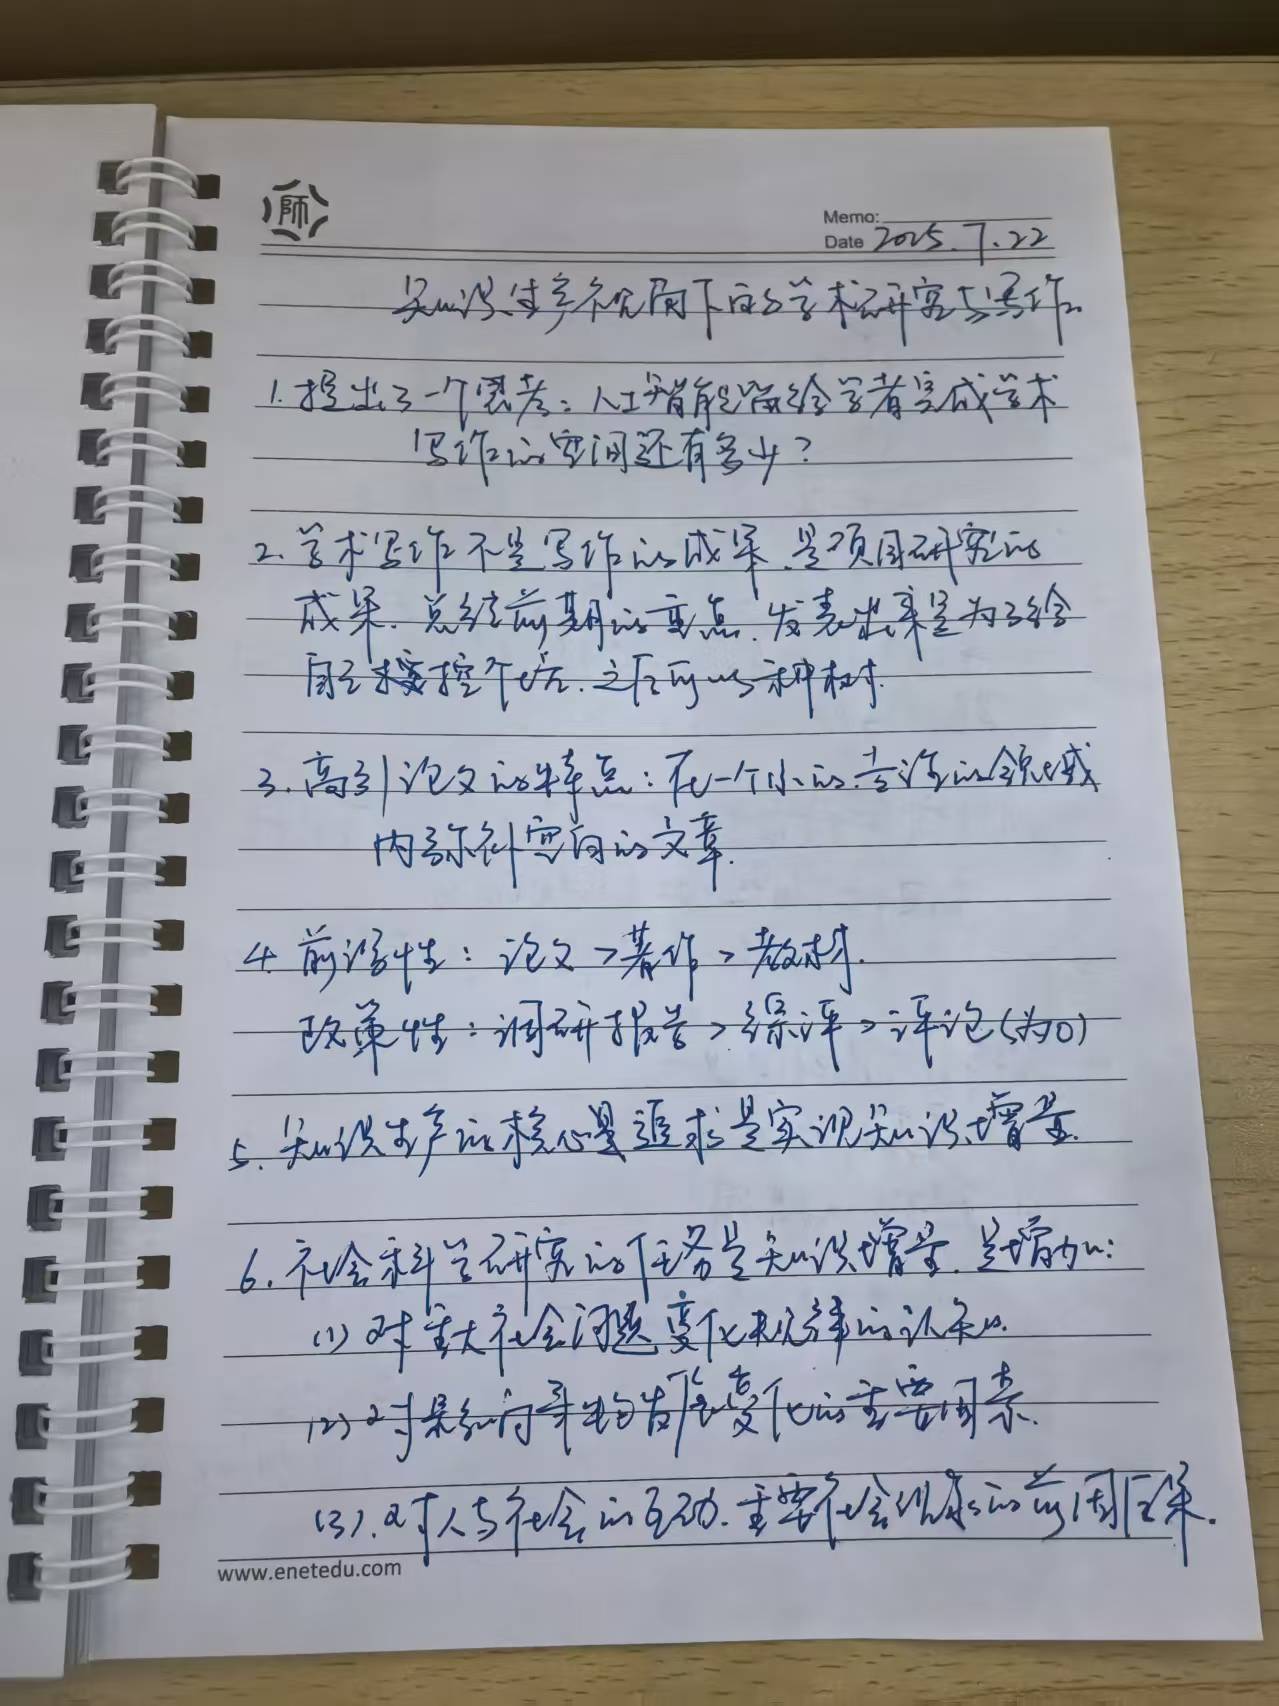 師
Memo:
Date 2025.7.22
知识生产视阈下的学术研究与写作
1. 提出了一个思考：人工智能留给学者完成学术
写作的空间还有多少？
2. 学术写作不是写作的成果，是项目研究的
成果，总结前期的重点，发表出来是为了给
自己挖个坑，之后可以种树.
3. 高引论文的特点：在一个小的，的领域
内弥补空白的文章.
4. 前沿性：论文＞著作＞教材.
政策性：调研报告＞综评＞评论（为0）
5. 知识生产的核心是追求是实现知识增量.
6. 社会科学研究的任务是知识增量，是增加：
（1）对重大社会问题变化规律的认知.
（2）对影响事物发展变化的主要因素.
（3）.对人与社会的互动.主要社会的前因后果.
www.enetedu.com